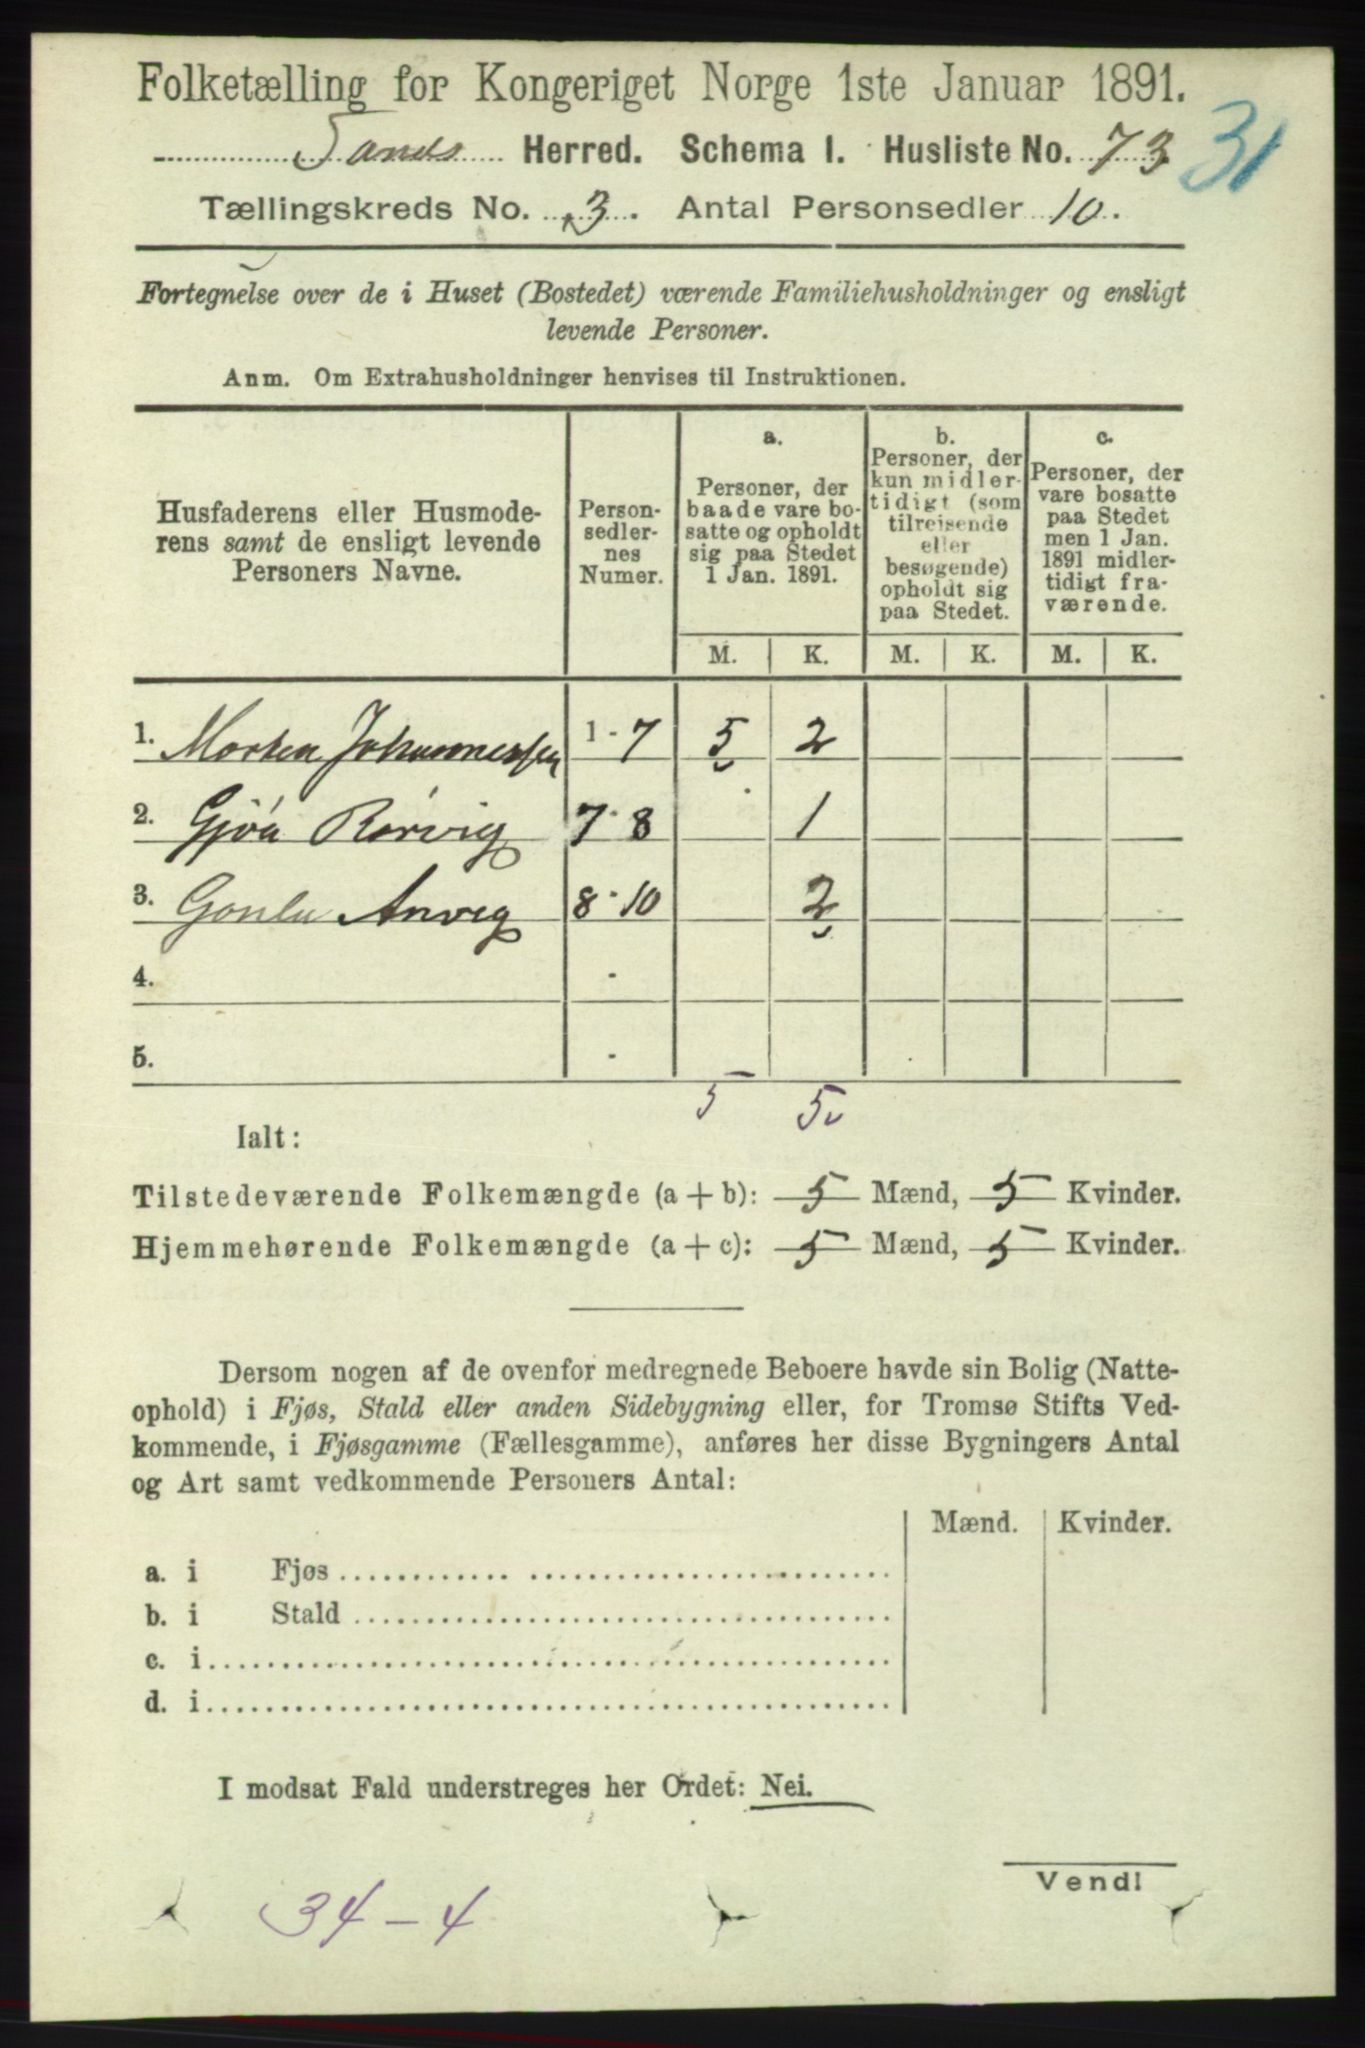 Folketælling for Kongeriget Norge 1ste Januar 1891.
Sands Herred. Schema I. Husliste No. 73 31
Tællingskreds No. 3. Antal Personsedler 10.
Fortegnelse over de i Huset (Bostedet) værende Familiehusholdninger og ensligt
levende Personer.
Anm. Om Extrahusholdninger henvises til Instruktionen.
Husfaderens eller Husmode-
rens samt de ensligt levende
Personers Navne.
Person-
sedler-
nes
Numer.
a.
Personer, der
baade vare bo-
satte og opholdt
sig paa Stedet
1 Jan. 1891.
b.
Personer, der
kun midler-
tidigt (som
tilreisende
eller
besøgende)
opholdt sig
paa Stedet.
c.
Personer, der
vare bosatte
paa Stedet
men 1 Jan.
1891 midler-
tidigt fra-
værende.
M. K. M. K. M. K.
1. Morten Johannessen 1 - 7 5 2
2. Gjøa Rørvig 7 - 8 1
3. Gonla Anvig 8 - 10 2
4. -
5. -
5 5
Ialt:
Tilstedeværende Folkemængde (a + b): 5 Mænd, 5 Kvinder.
Hjemmehørende Folkemængde (a + c): 5 Mænd, 5 Kvinder.
Dersom nogen af de ovenfor medregnede Beboere havde sin Bolig (Natte-
ophold) i Fjøs, Stald eller anden Sidebygning eller, for Tromsø Stifts Ved-
kommende, i Fjøsgamme (Fællesgamme), anføres her disse Bygningers Antal
og Art samt vedkommende Personers Antal:
Mænd. Kvinder.
a. i Fjøs
b. i Stald
c. i
d. i
I modsat Fald understreges her Ordet: Nei.
Vend!
34 - 4